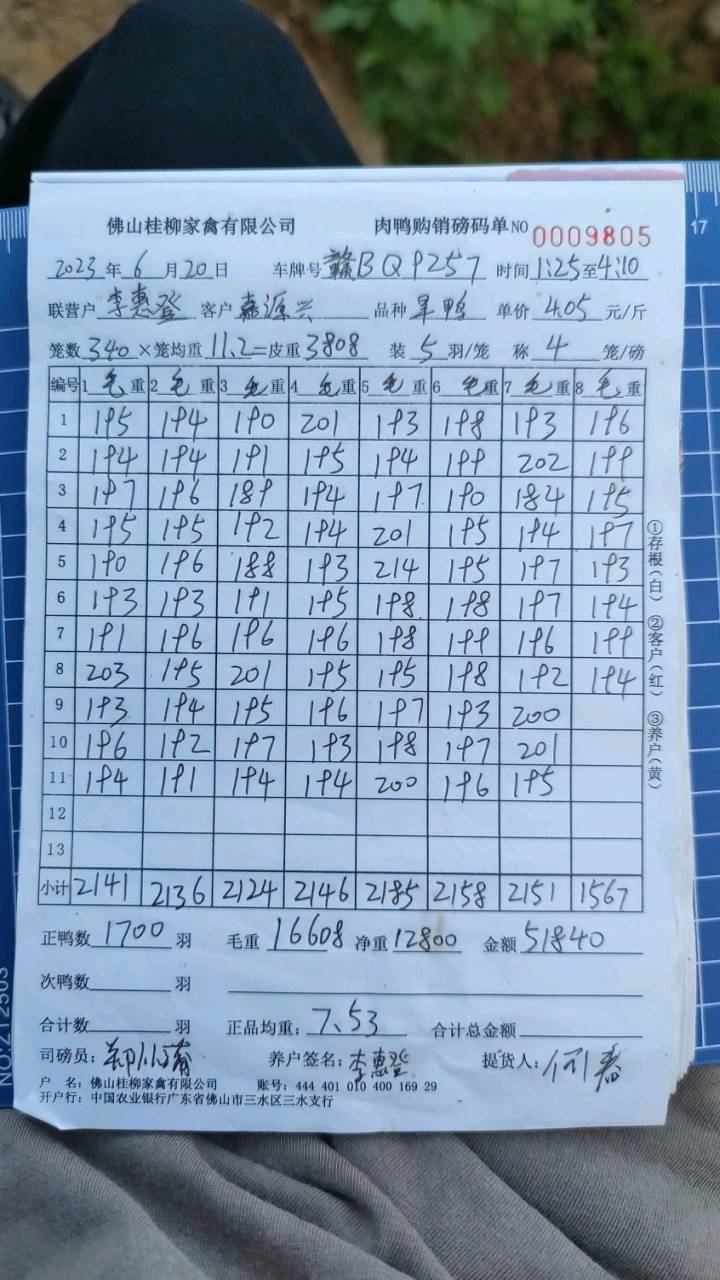 佛山桂柳家禽有限公司 肉鸭购销磅码单 NO 0009805
2023年6月20日 车牌号 赣BQ9257 时间 1:25至4:10
联营户 李惠登 客户 嘉源兴 品种 旱鸭 单价 4.05 元/斤
笼数 340 ×笼均重 11.2=皮重 3808 装 5 羽/笼 称 4 笼/磅
编号 1毛重 2毛重 3毛重 4毛重 5毛重 6毛重 7毛重 8毛重
1 195 194 190 201 193 198 193 196
2 194 194 191 195 194 199 202 199
3 197 196 189 194 197 190 184 195
4 195 195 192 194 201 195 194 197
5 190 196 188 193 214 195 197 193
6 193 193 191 195 198 198 197 194
7 191 196 196 196 198 199 196 199
8 203 195 201 195 195 198 192 194
9 193 194 195 196 197 193 200
10 196 192 197 193 198 197 201
11 194 191 194 194 200 196 195
12
13
小计 2141 2136 2124 2146 2185 2158 2151 1567
①存根(白) ②客户(红) ③养户(黄)
正鸭数 1700 羽 毛重 16608 净重 12800 金额 51840
次鸭数 羽
合计数 羽 正品均重: 7.53 合计总金额
司磅员: 郑小 养户签名: 李惠登 提货人: 何春
户 名: 佛山桂柳家禽有限公司 账号: 444 401 010 400 169 29
开户行: 中国农业银行广东省佛山市三水区三水支行
17
NO:Z12503